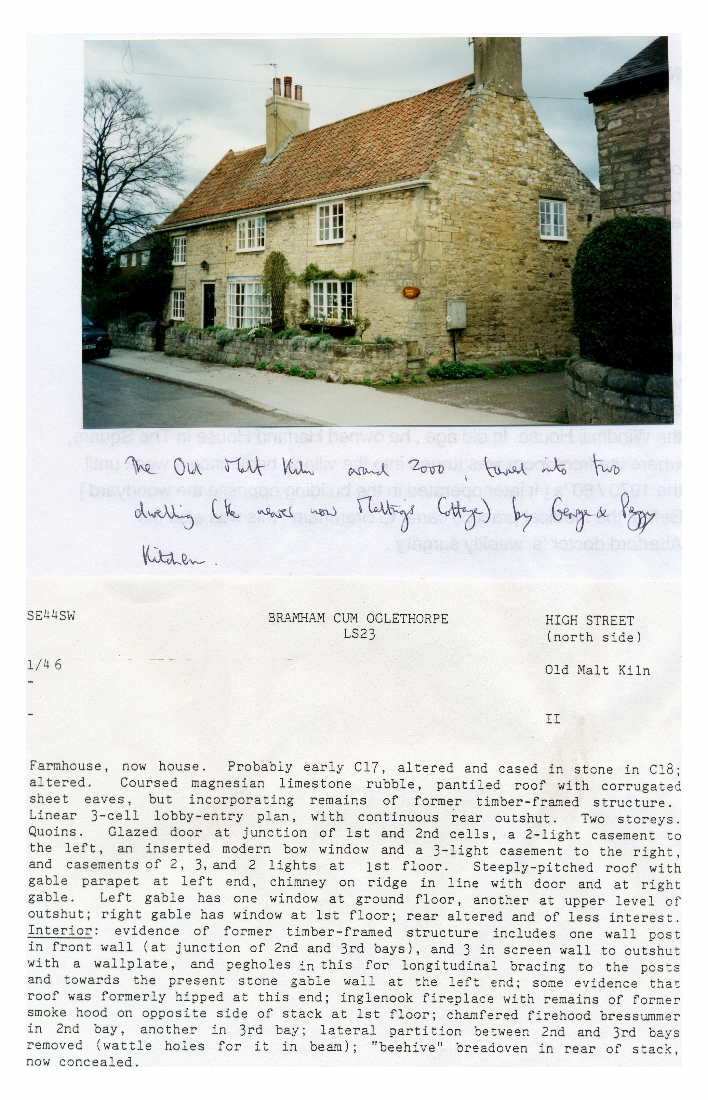 The Old Malt Kiln around 2000, turned into two
dwelling (the newer now Maltings Cottage) by George & Peggy
Kitchen.
SE44SW
BRAMHAM CUM OGLETHORPE
LS23
HIGH STREET
(north side)
1/46
Old Malt Kiln
-
-
II
Farmhouse, now house. Probably early C17, altered and cased in stone in C18;
altered. Coursed magnesian limestone rubble, pantiled roof with corrugated
sheet eaves, but incorporating remains of former timber-framed structure.
Linear 3-cell lobby-entry plan, with continuous rear outshut. Two storeys.
Quoins. Glazed door at junction of 1st and 2nd cells, a 2-light casement to
the left, an inserted modern bow window and a 3-light casement to the right,
and casements of 2, 3, and 2 lights at 1st floor. Steeply-pitched roof with
gable parapet at left end, chimney on ridge in line with door and at right
gable. Left gable has one window at ground floor, another at upper level of
outshut; right gable has window at 1st floor; rear altered and of less interest.
Interior: evidence of former timber-framed structure includes one wall post
in front wall (at junction of 2nd and 3rd bays), and 3 in screen wall to outshut
with a wallplate, and pegholes in this for longitudinal bracing to the posts
and towards the present stone gable wall at the left end; some evidence that
roof was formerly hipped at this end; inglenook fireplace with remains of former
smoke hood on opposite side of stack at 1st floor; chamfered firehood bressummer
in 2nd bay, another in 3rd bay; lateral partition between 2nd and 3rd bays
removed (wattle holes for it in beam); "beehive" breadoven in rear of stack,
now concealed.